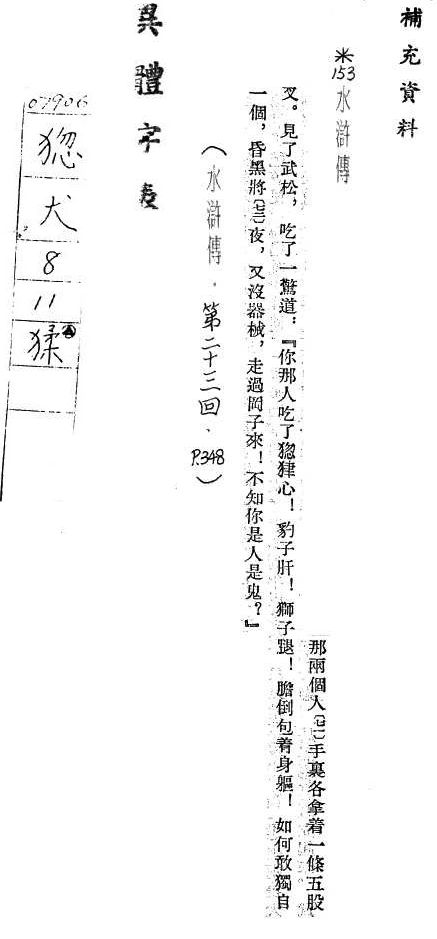 補充資料
※153水滸傳
那兩個人〔七二〕手裏各拿着一條五股
叉。見了武松，吃了一驚道：『你那人吃了心！豹子肝！獅子腿！膽倒包着身軀！如何敢獨自
一個，昏黑將〔七三〕夜，又沒器械，走過岡子來！不知你是人是鬼？』
（水滸傳．第二十三回．P.348）
異體字表
07906
犬
8
11
猱